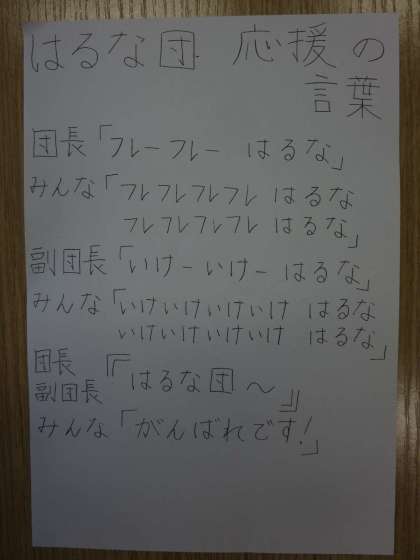 はるな団 応援の
言葉
団長「フレーフレー はるな」
みんな「フレフレフレフレ はるな
フレフレフレフレ はるな」
副団長「いけーいけー はるな」
みんな「いけいけいけいけ はるな
いけいけいけいけ はるな」
団長
副団長『はるな団〜』
みんな「がんばれです!」